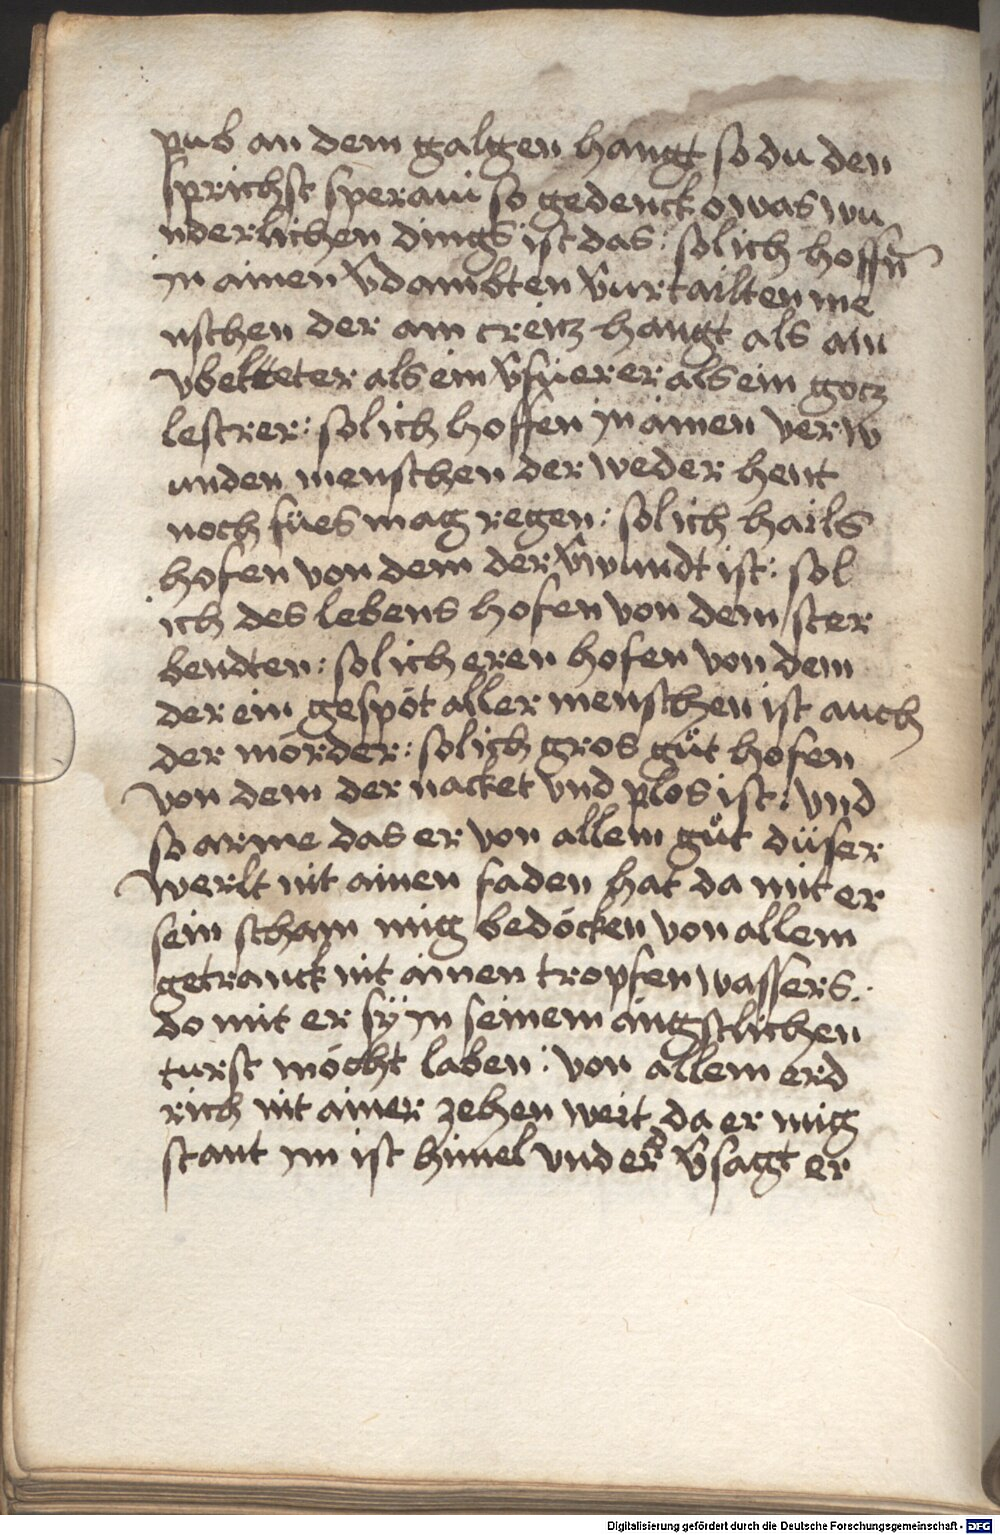 pub an dem galgen hangt so du den
sprichst speraui so gedenck o was wu
nderlichen dings ist das : solich hoffn̄
jn ainen v̄dambten v̄urtailten me
nschen der am creitz hangt als ain
vbelteter als ein v̄füerer als ein gotz
lestrer : solich hoffen jn ainen verw
unden menschen der weder hent
noch fües mag regen : solich hails
hofen von dem der v̄wundt ist : sol
ich des lebens hofen von dem ster
bendten : solich eren hofen von dem
der ein gespöt aller menschen ist auch
der mörder : solich gros gůt hofen
von dem der nacket vnd plos ist : vnd
so arme das er von allem gůt düser
werlt nit ainen faden hat da mit er
sein scham mig bedöcken von allem
getranck nit ainen tropfen wassers .
do mit er sÿ jn seinem angstlichen
turst möcht laben : von allem erd
rich nit ainer zehen weit da er mig
stant jm ist himel vnd erd v̄sagt er
Digitalisierung gefördert durch die Deutsche Forschungsgemeinschaft - DFG